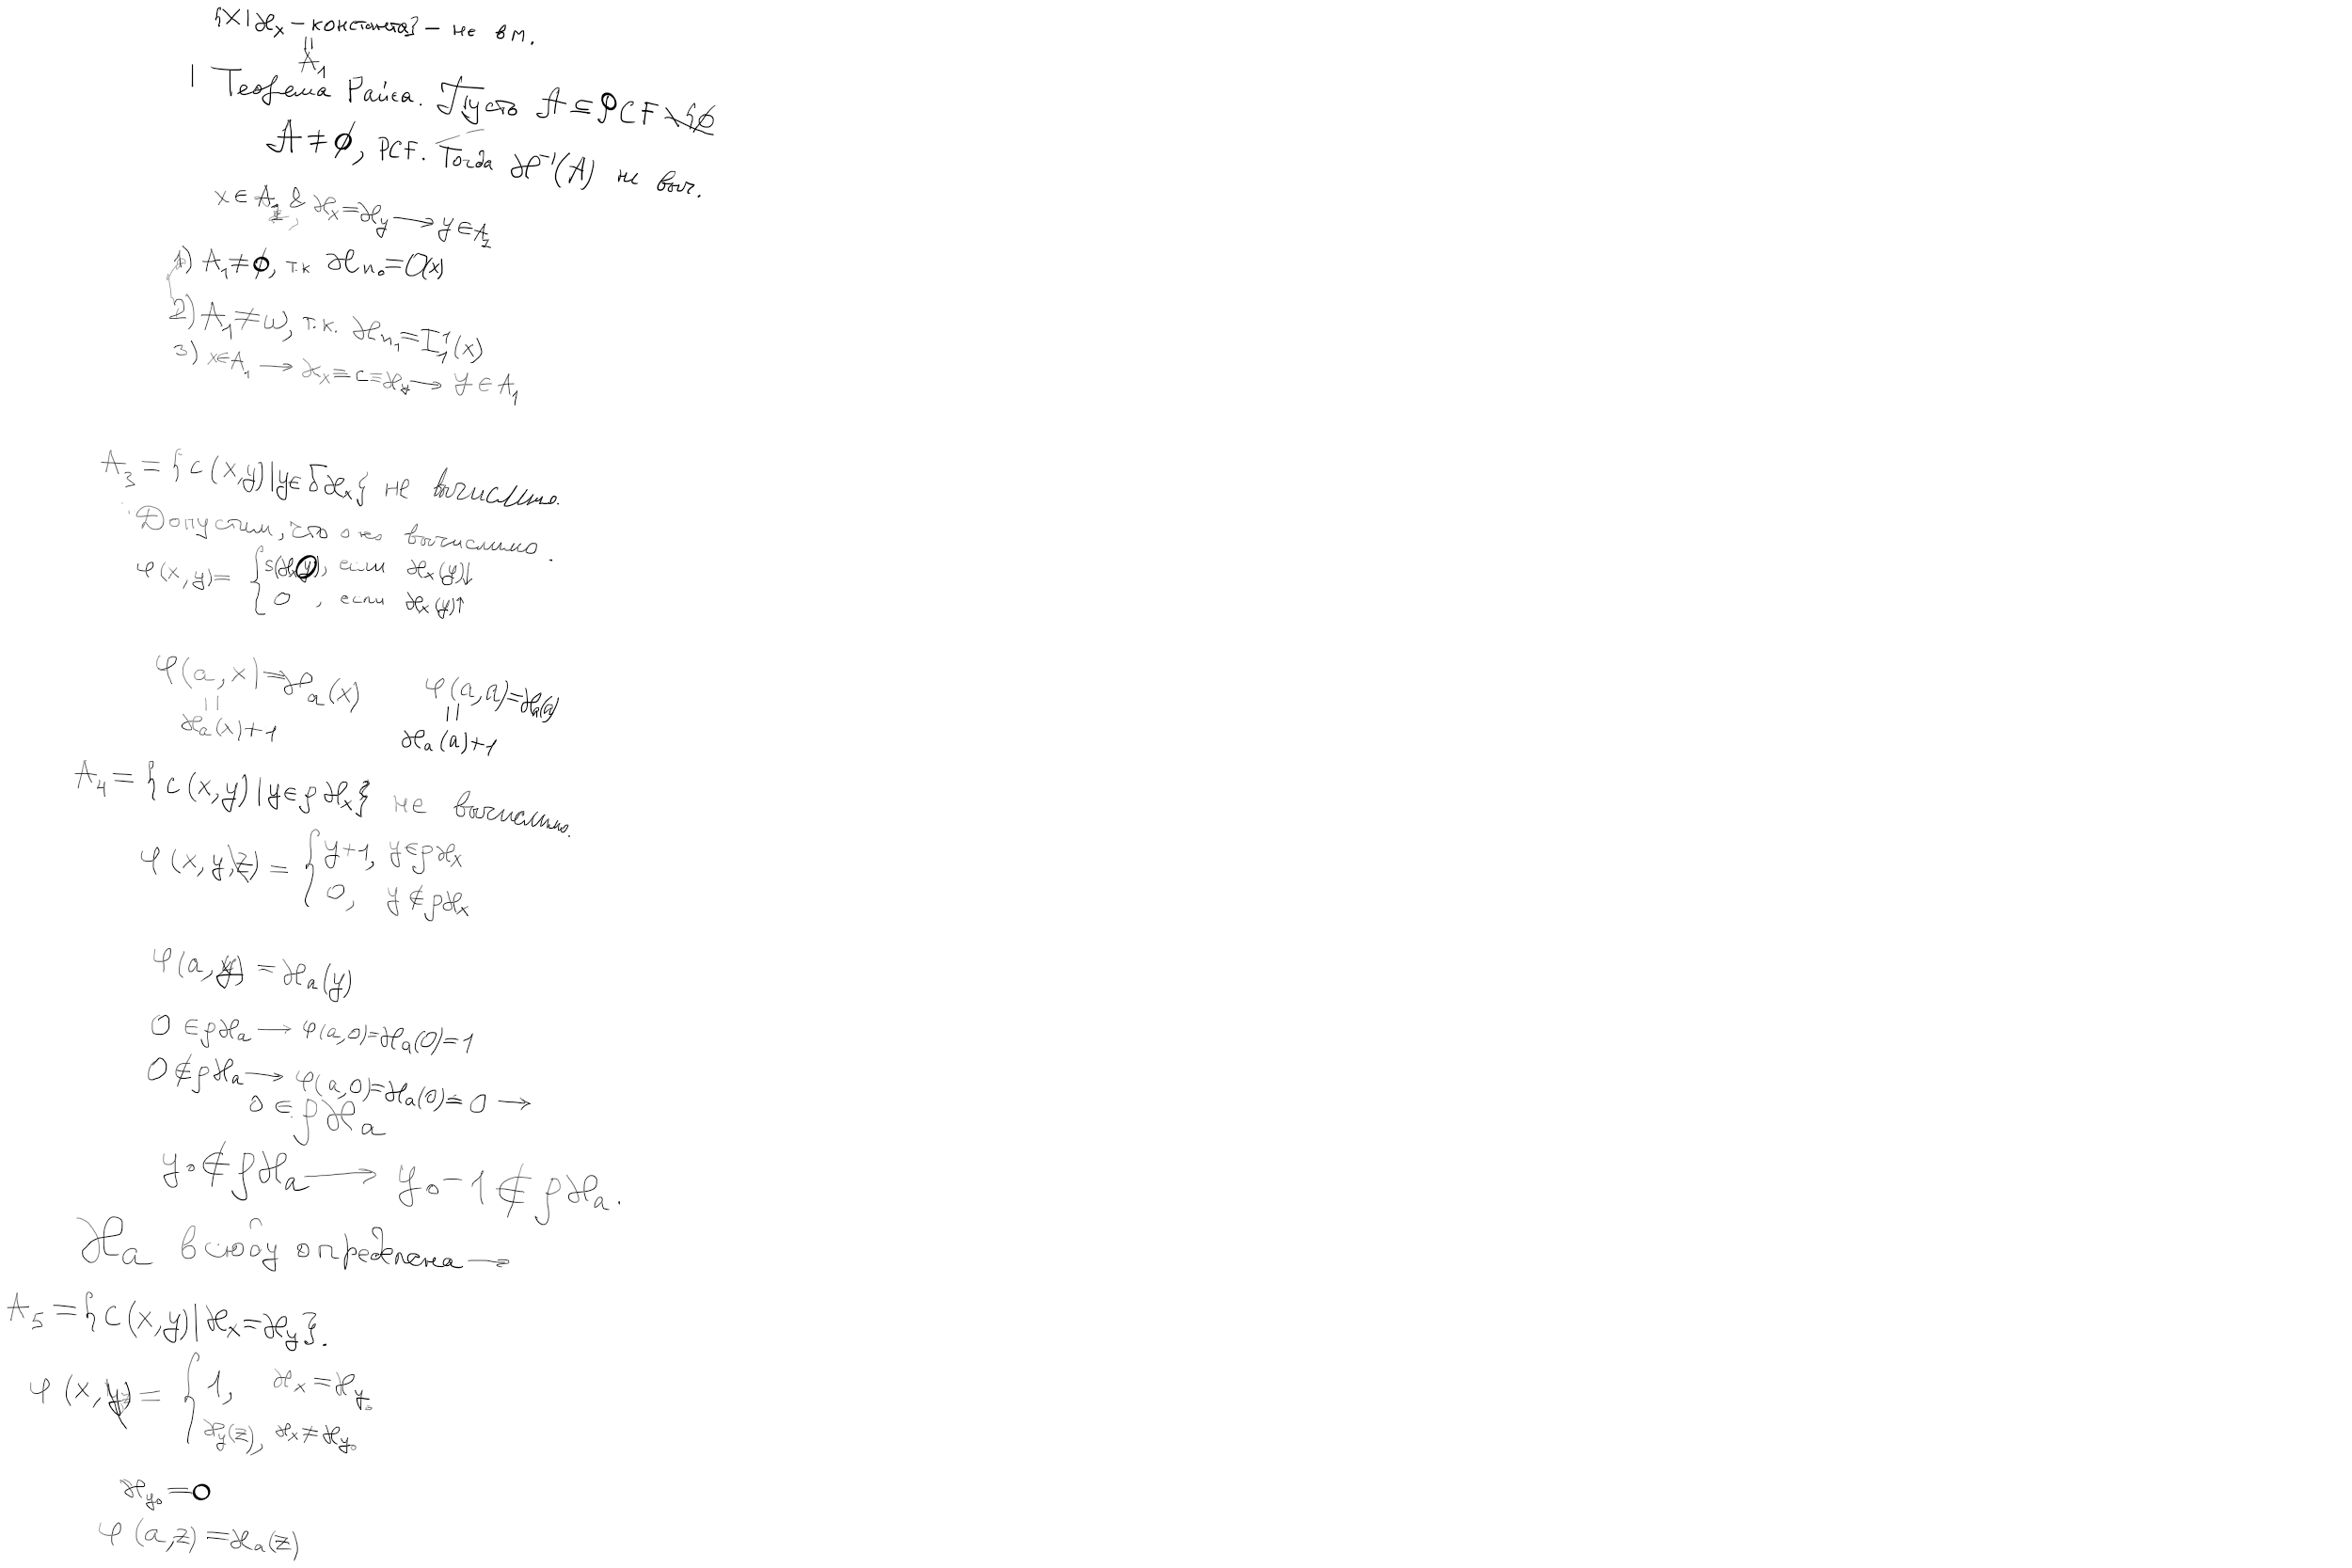 {x | ϰₓ – константа} – не вм.
||
A₁
| Теорема Райса. Пусть A ⊆ PCF
A ≠ ∅, PCF. Тогда ϰ⁻¹(A) не выч.
x ∈ A₁ & ϰₓ = ϰ_y → y ∈ A₁
1) A₁ ≠ ∅, т.к ϰ_{n₀} = O(x)
2) A₁ ≠ ω, т.к. ϰ_{n₁} = I¹₁(x)
3) x ∈ A₁ → ϰₓ ≡ c ≡ ϰ_y → y ∈ A₁
A₃ = {c(x,y) | y ∈ δϰₓ} не вычислимо.
Допустим, что оно вычислимо.
φ(x,y) = { s(ϰₓ(y)), если ϰₓ(y)↓
0, если ϰₓ(y)↑
φ(a,x) = ϰₐ(x) φ(a,a) = ϰₐ(a)
|| ||
ϰₐ(x)+1 ϰₐ(a)+1
A₄ = {c(x,y) | y ∈ ρϰₓ} не вычислимо.
φ(x,y) = { y+1, y ∈ ρϰₓ
0, y ∉ ρϰₓ
φ(a,y) = ϰₐ(y)
0 ∈ ρϰₐ → φ(a,0) = ϰₐ(0) = 1
0 ∉ ρϰₐ → φ(a,0) = ϰₐ(0) = 0 →
0 ∈ ρϰₐ
y₀ ∉ ρϰₐ → y₀ – 1 ∉ ρϰₐ.
ϰₐ всюду определена →
A₅ = {c(x,y) | ϰₓ = ϰ_y}.
φ(x, ) = { 1, ϰₓ = ϰ_{y₀}
ϰ_y(z), ϰₓ ≠ ϰ_{y₀}
ϰ_{y₀} = 0
φ(a,z) = ϰₐ(z)